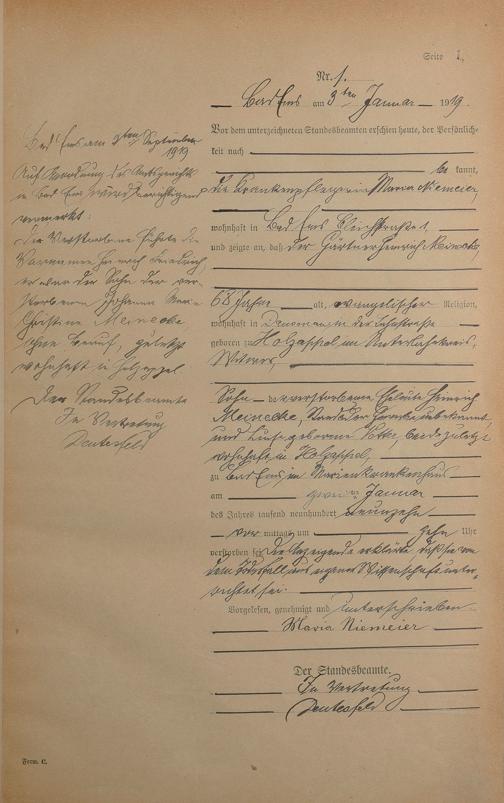 Seite 1,
Nr. 1.
Bad Ems am 3ten Januar 1919.
Vor dem unterzeichneten Standesbeamten erschien heute, der Persönlich-
keit nach
be kannt,
die Krankenpflegerin Maria Niemeier,
wohnhaft in Bad Ems
und zeigte an, daß der Gärtner Heinrich Meinecke
68 Jahre alt, evangelischer Religion,
wohnhaft in
geboren zu Holzappel im Unterlahnkreis,
Witwer,
Sohn der verstorbenen Eheleute Heinrich
Meinecke, Stand des
und geborene beide zuletzt
wohnhaft in Holzappel,
zu Bad Ems, im Marienkrankenhaus
am zwei ten Januar
des Jahres tausend neunhundert neunzehn
vor mittags um zehn Uhr
verstorben sei. Die Anzeigende erklärte, daß sie von
dem Todesfall aus eigener Wissenschaft unter-
richtet sei.
Vorgelesen, genehmigt und unterschrieben
Maria Niemeier
Der Standesbeamte.
In Vertretung
Bad Ems am September
1919
Auf Anordnung des Amtsgerichts
in Bad Ems wird berichtigend
vermerkt:
Der Verstorbene führte die
Vornamen
er war der Sohn der ver-
storbenen Johanna
Christine Meinecke,
ohne Beruf, zuletzt
wohnhaft in Holzappel.
Der Standesbeamte
In Vertretung
Form. C.